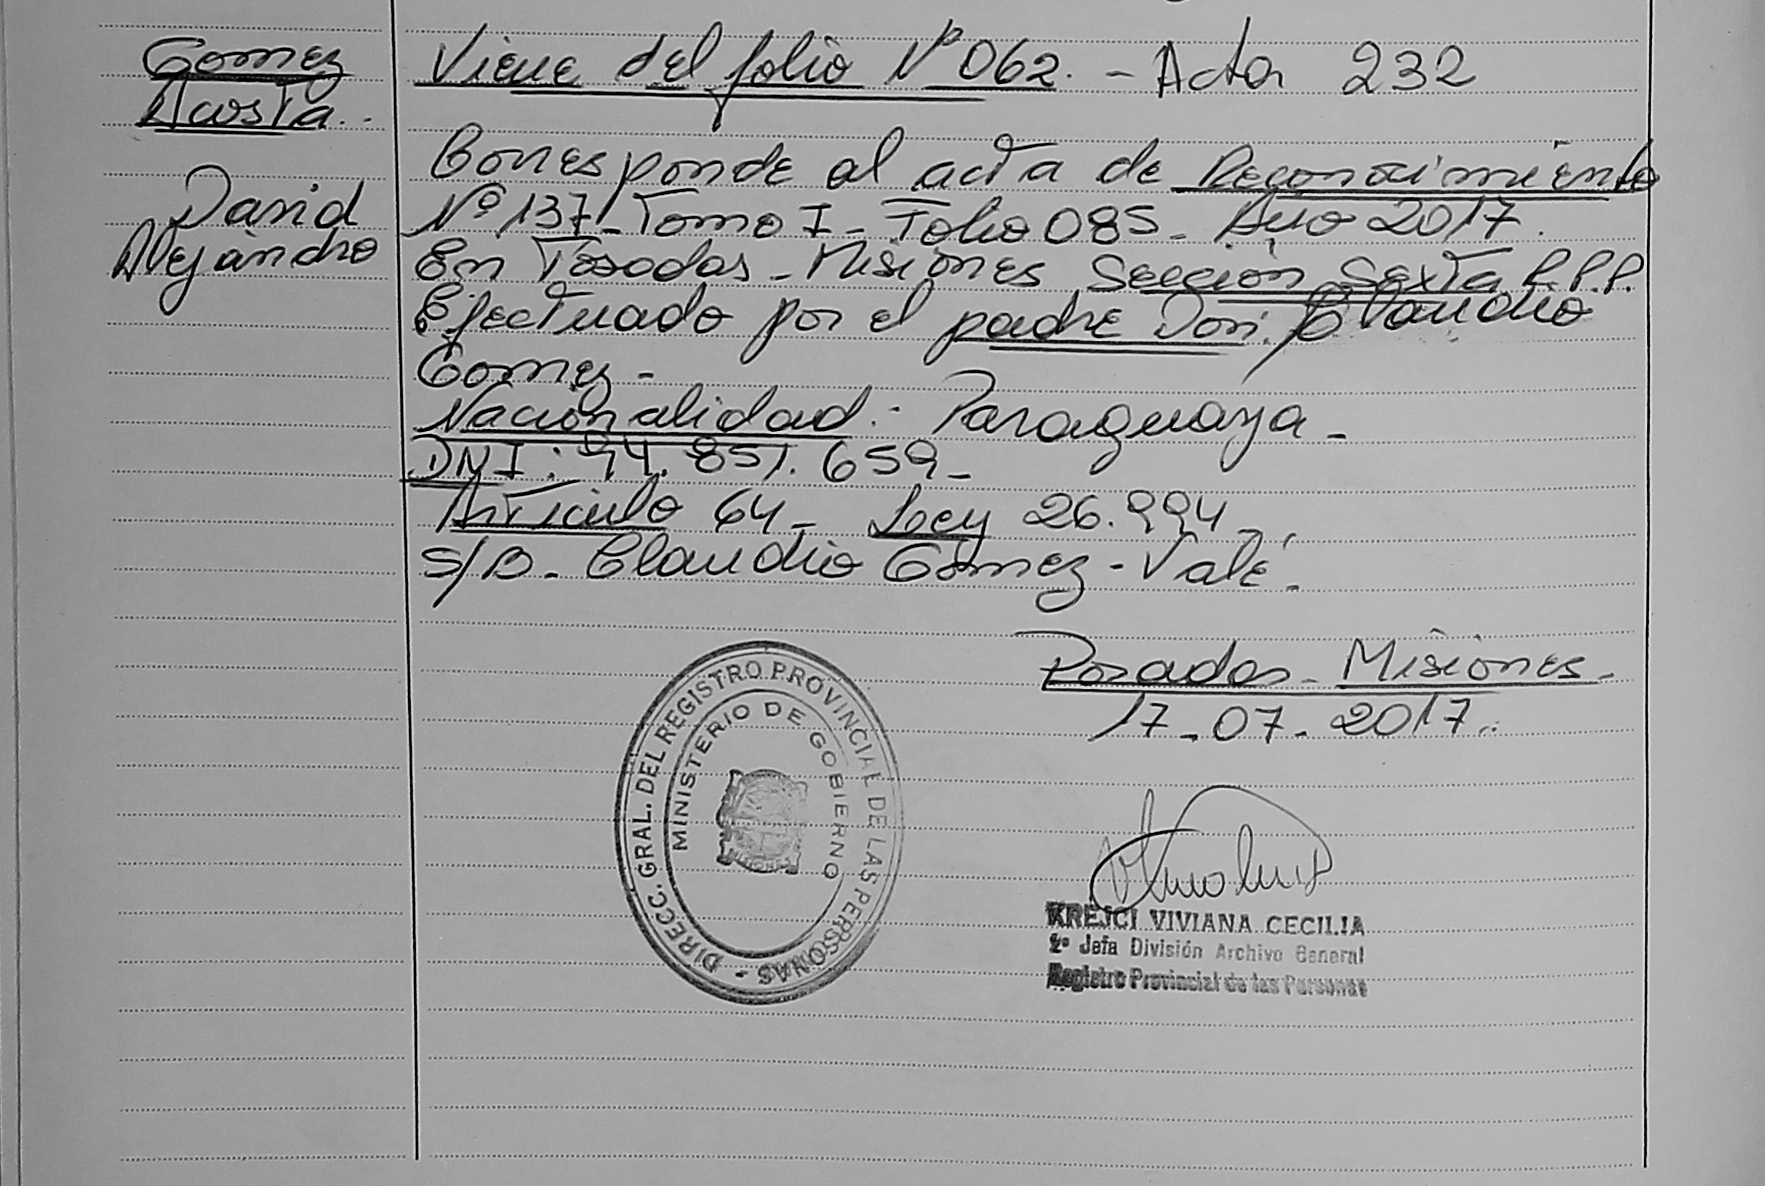 Gomez
Acosta.
David
Alejandro
Viene del folio Nº 062. - Acta 232
Corresponde al acta de Reconocimiento
Nº 137 - Tomo I - Folio 085 - Año 2017.
En Posadas - Misiones Sección Sexta R.P.P.
Efectuado por el padre Don: Claudio
Gomez -
Nacionalidad: Paraguaya -
DNI: 94.851.659 -
Artículo 64 - Ley 26.994 -
S/B - Claudio Gómez - Vale -
Posadas - Misiones -
17 - 07 - 2017.
DIRECC. GRAL. DEL REGISTRO PROVINCIAL DE LAS PERSONAS -
MINISTERIO DE GOBIERNO
MISIONES
KREJCI VIVIANA CECILIA
2º Jefa División Archivo General
Registro Provincial de las Personas